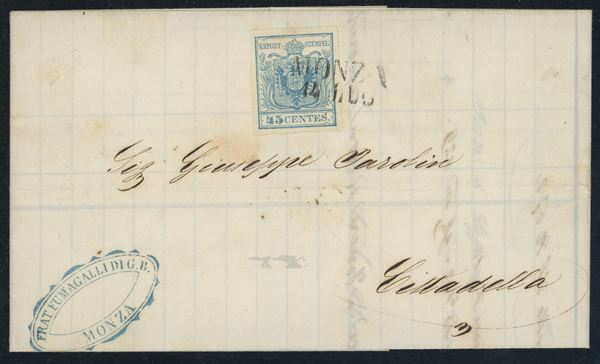 KKPOST-STEMPEL
45 CENTES.
MONZA
14 LUG
Sig Giuseppe Parolin
Cittadella
FRAT. FUMAGALLI DI G.B.
MONZA